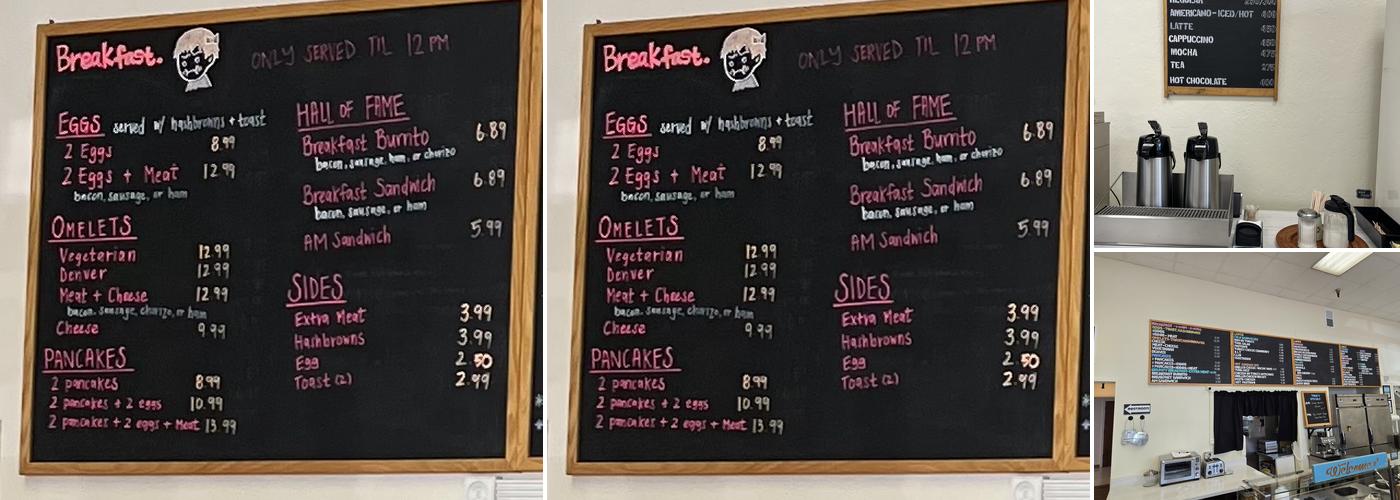 Breakfast.
ONLY SERVED TIL 12 PM
EGGS served w/ hashbrowns + toast
2 Eggs 8.99
2 Eggs + Meat 12.99
bacon, sausage, or ham
OMELETS
Vegetarian 12.99
Denver 12.99
Meat + Cheese 12.99
bacon, sausage, chorizo, or ham
Cheese 9.99
PANCAKES
2 pancakes 8.99
2 pancakes + 2 eggs 10.99
2 pancakes + 2 eggs + Meat 13.99
HALL OF FAME
Breakfast Burrito 6.89
bacon, sausage, ham, or chorizo
Breakfast Sandwich 6.89
bacon, sausage, or ham
AM Sandwich 5.99
SIDES
Extra Meat 3.99
Hashbrowns 3.99
Egg 2.50
Toast (2) 2.99
Breakfast.
ONLY SERVED TIL 12 PM
EGGS served w/ hashbrowns + toast
2 Eggs 8.99
2 Eggs + Meat 12.99
bacon, sausage, or ham
OMELETS
Vegetarian 12.99
Denver 12.99
Meat + Cheese 12.99
bacon, sausage, chorizo, or ham
Cheese 9.99
PANCAKES
2 pancakes 8.99
2 pancakes + 2 eggs 10.99
2 pancakes + 2 eggs + Meat 13.99
HALL OF FAME
Breakfast Burrito 6.89
bacon, sausage, ham, or chorizo
Breakfast Sandwich 6.89
bacon, sausage, or ham
AM Sandwich 5.99
SIDES
Extra Meat 3.99
Hashbrowns 3.99
Egg 2.50
Toast (2) 2.99
AMERICANO - ICED/HOT 400
LATTE 450
CAPPUCCINO 450
MOCHA 475
TEA 275
HOT CHOCOLATE 400
Welcome